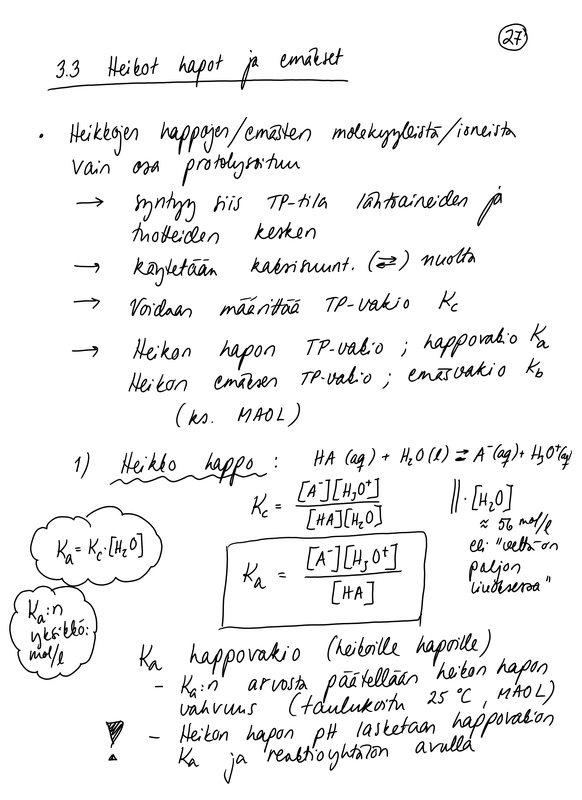 27
3.3 Heikot hapot ja emäkset
• Heikkojen happojen/emästen molekyyleistä/ioneista
vain osa protolysoituu
→ syntyy siis TP-tila lähtöaineiden ja
tuotteiden kesken
→ käytetään kaksisuunt. (⇄) nuolta
→ Voidaan määrittää TP-vakio Kc
→ Heikon hapon TP-vakio ; happovakio Ka
Heikon emäksen TP-vakio ; emäsvakio Kb
(ks. MAOL)
1) Heikko happo : HA (aq) + H₂O (l) ⇄ A⁻(aq) + H₃O⁺(aq)
Kc = [A⁻][H₃O⁺] / [HA][H₂O] || · [H₂O]
≈ 56 mol/l
eli "vettä on
paljon
liuoksessa"
Ka = Kc · [H₂O]
Ka = [A⁻][H₃O⁺] / [HA]
Ka:n
yksikkö:
mol/l
Ka happovakio (heikoille hapoille)
– Ka:n arvosta päätellään heikon hapon
vahvuus (taulukoitu 25 °C, MAOL)
! – Heikon hapon pH lasketaan happovakion
Ka ja reaktioyhtälön avulla